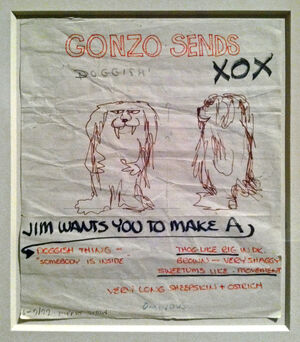 GONZO SENDS
XOX
DOGGISH!
JIM WANTS YOU TO MAKE A,
DOGGISH THING -
SOMEBODY IS INSIDE
THOG-LIKE RIG IN DK.
BROWN - VERY SHAGGY
SWEETUMS LIKE MOVEMENT
VERY LONG SHEEPSKIN + OSTRICH